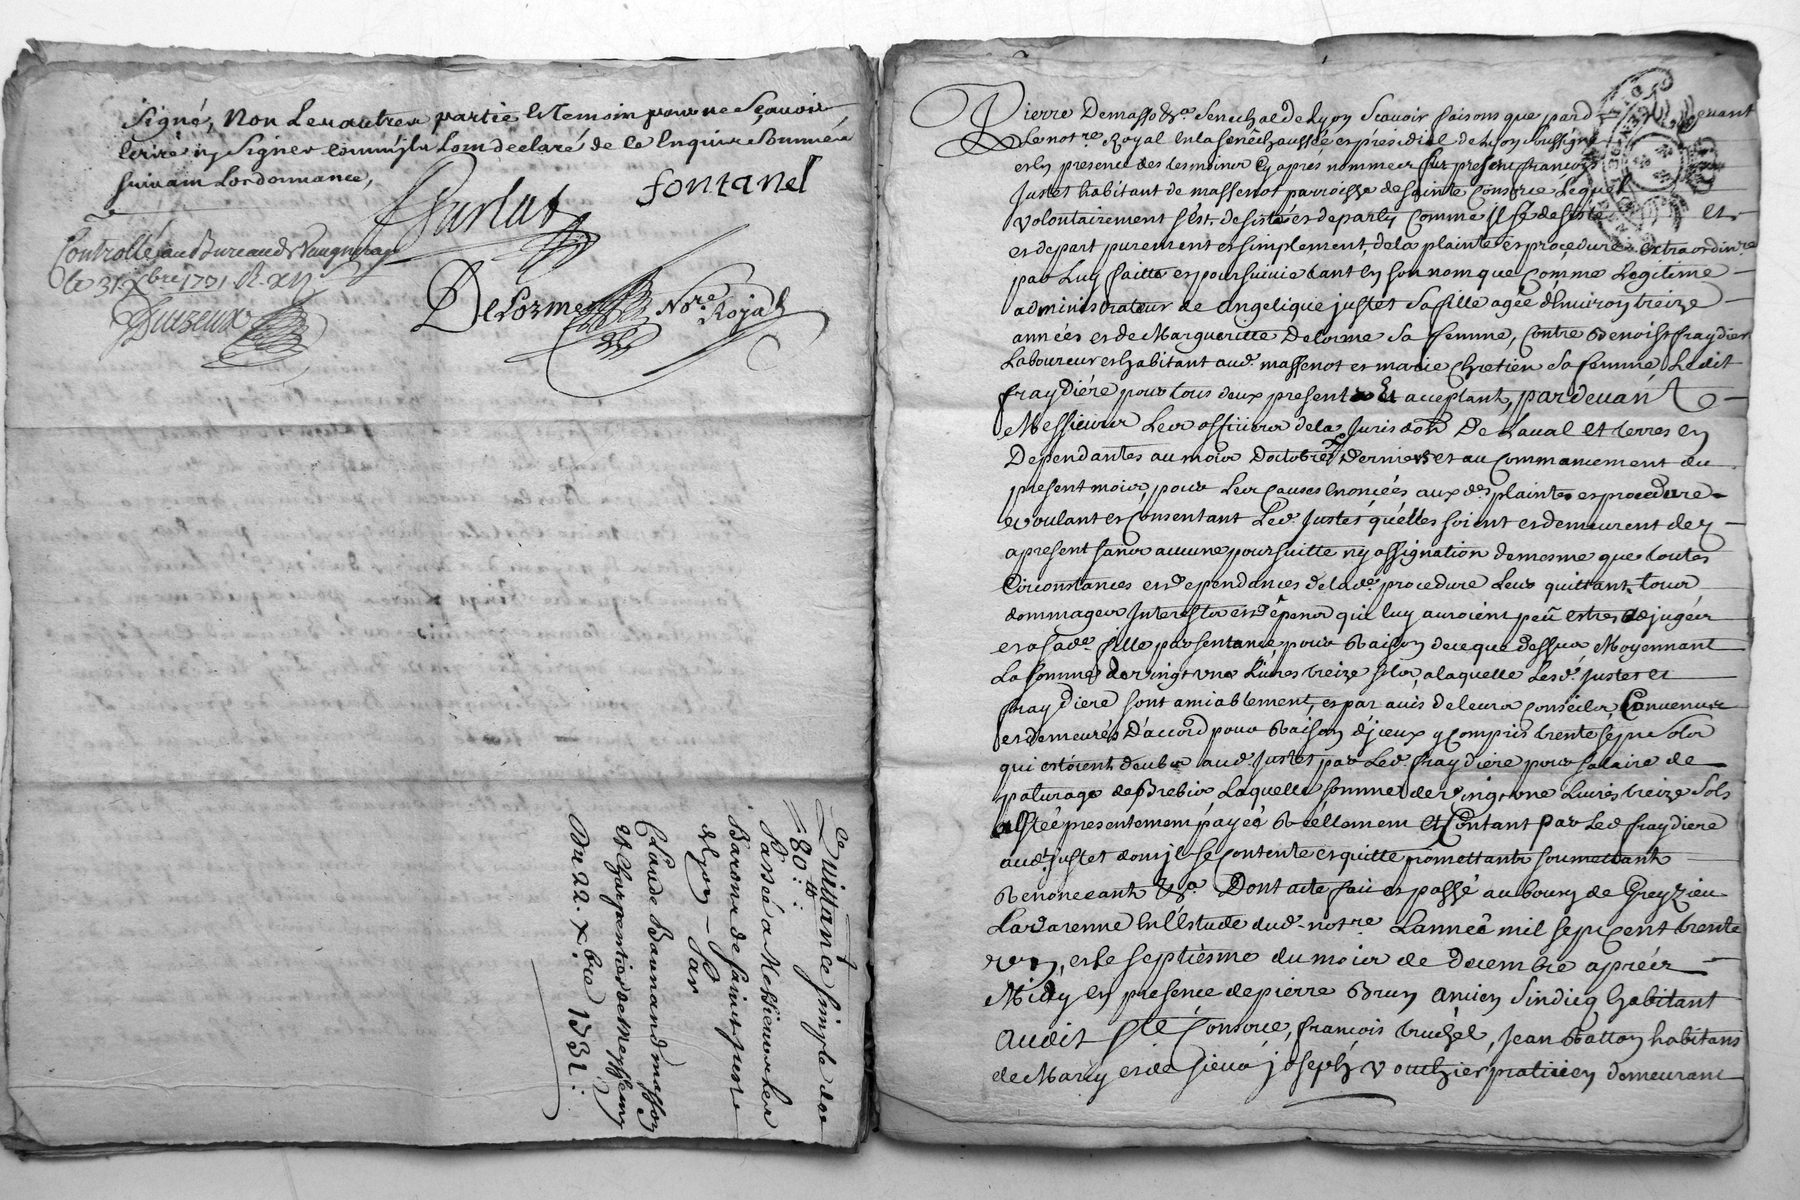 Signé, Non Les autres partie et temoin pour ne Sçavoir
Ecrire ny Signer comme ils l'ont declaré de ce Enquis et Sommés
Suivant Lordonnance,
fontanel
Controllé au Bureau de Vaugneray
le 31 xbre 1731 R. xii s
Delorme No.re Royal
Quittance simple de
180 tt
Passé a Messieurs les
Barons de Saint Just
de Lyon – Par
Claude Bannand masson
et charpentier de Messimy
Du 22. x.bre 1731.
Pierre Demasso &.a Senechal de Lyon Scavoir faisons que pard evant
Le not.re Royal en la Senechaussée et presidial de Lyon soussigné
et en presence des tesmoins cy apres nommés fut present françois
Justet habitant de massenot parroisse de sainte Consorce Lequel
volontairement s'est desisté et departy comme il se desiste et
et depart purement et simplement, de la plainte et procedure extraordin.re
par Luy faitte et poursuivie tant en son nom que comme Legitime
administrateur de angelique justet sa fille agée d'environ treize
années et de Margueritte Delorme sa femme, contre Benoist fraydiere
Laboureur et habitant aud. massenot et marie Chretien sa femme Ledit
fraydiére pour tous deux present et acceptant, pardevant
Messieurs Les officiers de la Jurisdon De Laval et terres en
Dependantes au mois Doctobre dernier et au Commancement du
present mois, pour Les causes enoncées aux des plainte et procedure
voulant et Consentant Led. Justet quelles soient et demeurent de z
apresent sans aucune poursuitte ny assignation de mesme que toutes
Circonstances et dependances de lad.e procedure Leur quittant tous
dommages Interests et dépens qui luy auroient peû estres adjugés
et a sad.e fille par sentance pour Raison de ce que dessus Moyennant
La somme de vingt une Livres treize sols, a laquelle Lesd. Justet et
fraydiere sont amiablement, et par avis de leurs conseils Convenus
et demeurés D'accord pour Raison d'jceux y compris trente sept Sols
qui estoient deubs aud. Justet par Led. fraydiere pour salaire de
paturage de Brebis Laquelle somme de vingt une Livres treize Sols
a Esté presentement payée Réellement et Contant par Led fraydiere
aud. Justet dont jl se contente et quitte promettants soumettant
Renoncant &.a Dont acte fait et passé au bourg de Greyzieu
La varenne En L'Estude dud. not.re L'année mil sept cent trente
un, et le septiésme du mois de decembre aprées
Midy en presence de pierre Brun Ancien Sindicq habitant
Audit S.te Consorce, françois truchet, Jean Ratton habitans
de Marcy et de sieur joseph Vouthier praticien demeurant